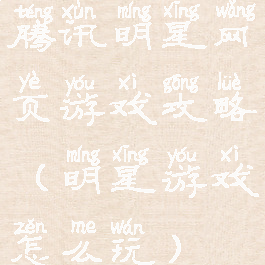 téng xùn míng xīng wǎng
腾讯明星网
yè yóu xì gōng lüè
页游戏攻略
míng xīng yóu xì
（明星游戏
zěn me wán
怎么玩）